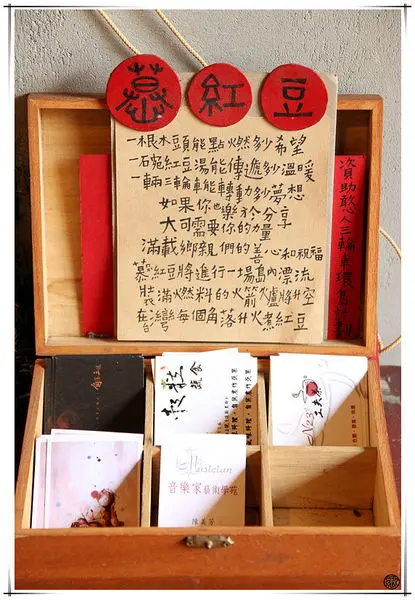 慕紅豆
一根木頭能點燃多少希望
一碗紅豆湯能傳遞多少溫暖
一輛三輪車能轉動多少夢想
如果你也樂於分享
大可需要你的力量
滿載鄉親們的善心和祝福
慕紅豆將進行一場島內漂流
裝滿燃料的火箭爐將升空
在台灣每個角落升火煮紅豆
資助憨人三輪車環島計劃
穀莊
蔬食
No.2
工夫茶
Musician
音樂家藝術學苑
陳美芳